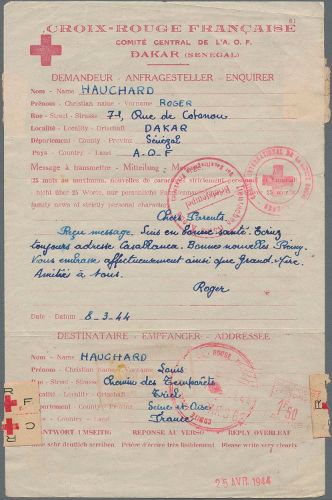 61
CROIX-ROUGE FRANÇAISE
COMITÉ CENTRAL DE L'A. O. F.
DAKAR (SÉNÉGAL)
DEMANDEUR - ANFRAGESTELLER - ENQUIRER
Nom - Name HAUCHARD
Prénom - Christian name - Vorname ROGER
Rue - Street - Strasse 71, Rue de Cotonou
Localité - Locality - Ortschaft DAKAR
Département - County - Provinz Sénégal
Pays - Country - Land A.O.F
Message à transmettre - Mitteilung
25 mots au maximum, nouvelles de caractère strictement personnel
nicht über 25 Worte, nur persönliche
family news of strictly personal character
Chers Parents.
Reçu message. Suis en bonne santé. Ecrivez
toujours adresse Casablanca. Bonnes nouvelles Rémy.
Vous embrasse affectueusement ainsi que Grand-Mère.
Amitiés à tous.
Roger
Date - Datum 8-3-44
DESTINATAIRE - EMPFANGER - ADDRESSEE
Nom - Name HAUCHARD
Prénom - Christian name - Vorname Louis
Rue - Street - Strasse Chemin des
Localité - Locality - Ortschaft Triel
Département - County - Provinz Seine et Oise
Pays - Country - Land France
ANTWORT UMSEITIG RÉPONSE AU VERSO REPLY OVERLEAF
Bitte sehr deutlich schreiben Prière d'écrire très lisiblement Please write very clearly
25 AVR. 1944